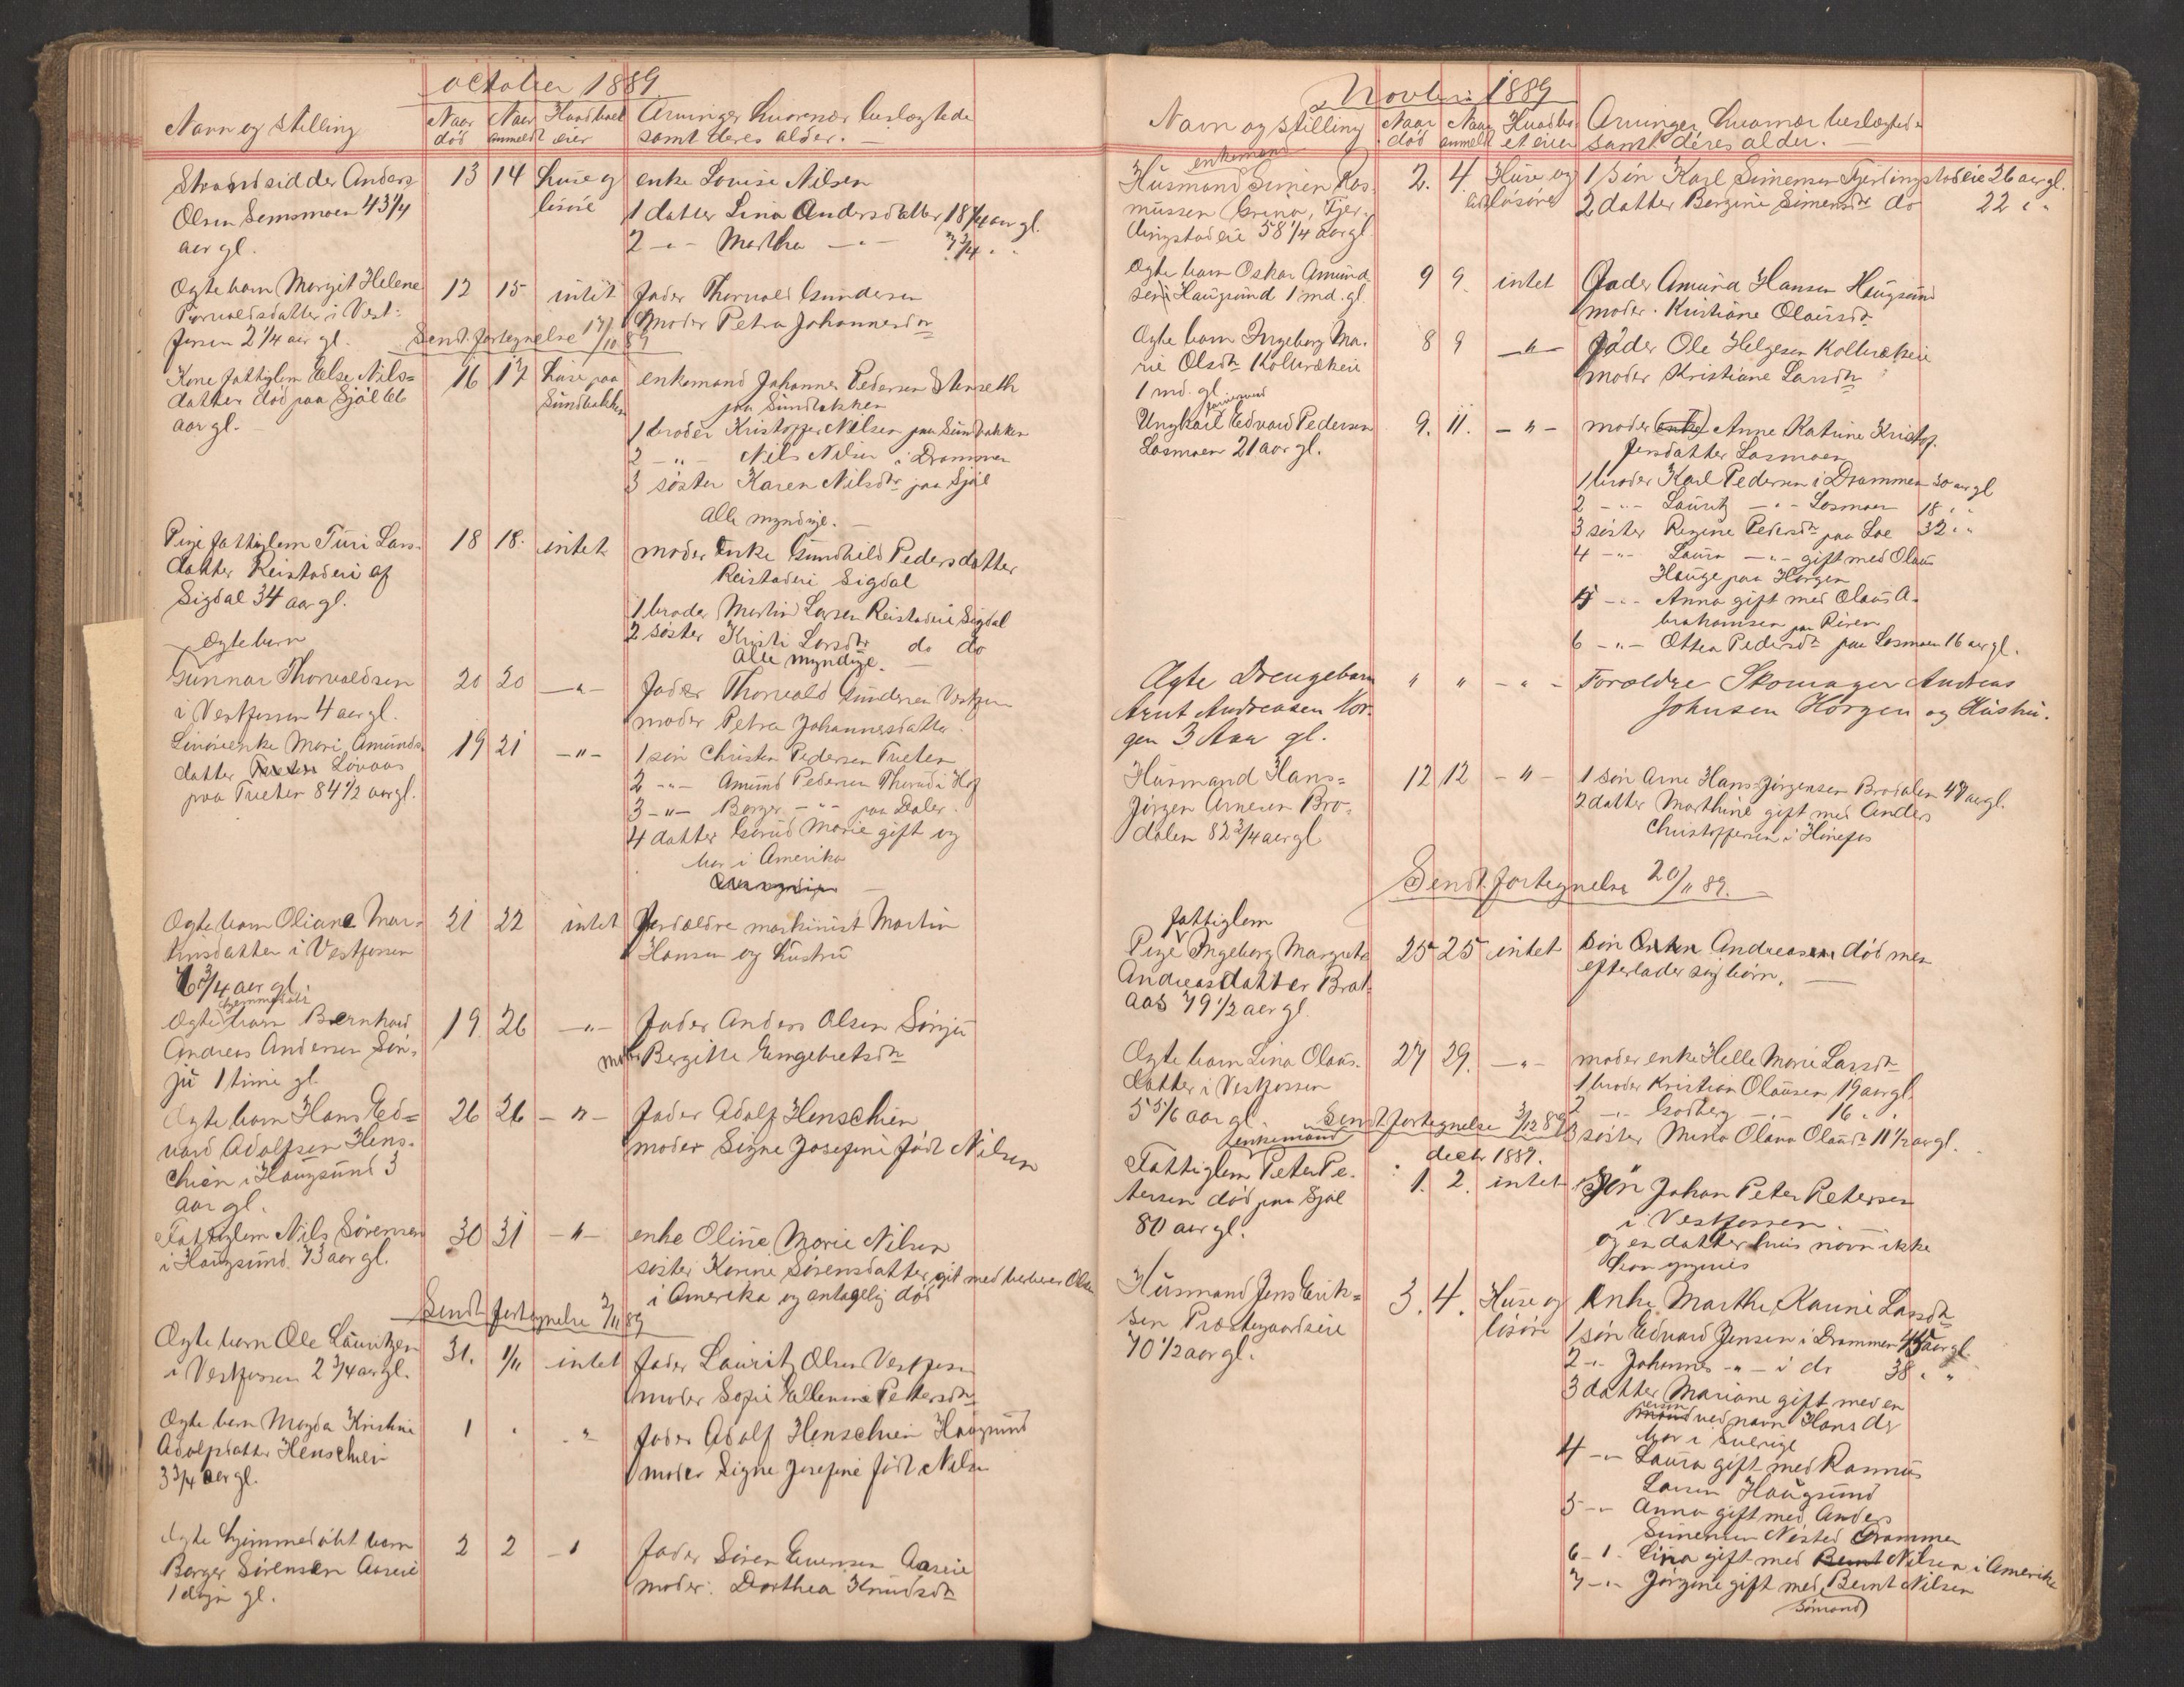 october 1889
Navn og stilling
Naar død
Naar anmeldt
Hvad boet eier
Arvinger hvornær beslægtede
samt deres alder.
Strandsidder Anders
Olsen Semsmoen 43 1/4
aar gl.
13 14 huse og
løsøre
enke Lovise Nilsen
1 datter Lina Andersdatter 18 1/4 aar gl.
2 -„- Martha -„- 7 3/4 „ „
Ægte barn Margit Helene
Thorvaldsdatter i Vest-
fossen 2 1/4 aar gl.
12 15 intet
fader Thorvald Gundersen
moder Petra Johannesdtr
Sendt fortegnelse 17/10 89
Kone fattiglem Else Nils-
datter død paa Sjøl 66
aar gl.
16 17 huse paa
Sundbakken
enkemand Johannes Pedersen Stenseth
paa Sundbakken
1 broder Kristoffer Nilsen paa Sundbakken
2 -„- Nils Nilsen i Drammen
3 søster Karen Nilsdtr paa Sjøl
Alle myndige.
Pige fattiglem Turi Lars-
datter Reistaderi af
Sigdal 34 aar gl.
18 18. intet
moder Enke Gunhild Pedersdatter
Reistaderi Sigdal
1 broder Martin Larsen Reistaderi Sigdal
2 søster Kristi Larsdtr do do
Alle myndige.
Ægte barn
Gunnar Thorvaldsen
i Vestfossen 4 aar gl.
20 20 -„-
fader Thorvald Gundersen Vestfossen
moder Petra Johannesdatter
enke Mari Amunds-
datter Løvaas
paa Trueten 84 1/2 aar gl.
19 21 -„-
1 søn Christen Pedersen Trueten
2 -„- Amund Pedersen i Hof
3 -„- Borger -„- paa Daler.
4 datter Gorud Marie gift og
bor i Amerika
Ægte barn Oliane Mar-
tinsdatter i Vestfossen
6 3/4 aar gl.
21 22 intet
Forældre maskinist Martin
Hansen og hustru
hjemmedøbt
Ægte barn Bernhard
Andreas Andersen Søn-
ju 1 time gl.
19. 26 -„-
fader Anders Olsen Sønju
moder Bergitte Engebretsdtr
Ægte barn Hans Ed-
vard Adolfsen Hens-
chien i Haugsund 3
aar gl.
26 26 -„-
fader Adolf Henschien
moder Signe Josefine født Nilsen
Fattiglem Nils Sørensen
i Haugsund 73 aar gl.
30 31 -„-
enke Oline Marie Nilsen
søster Karine Sørensdatter gift med Olsen
i Amerika og antagelig død
Sendt fortegnelse 2/11 89
Ægte barn Ole Lauritzen
i Vestfossen 2 3/4 aar gl.
31. 1/11 intet
fader Lauritz Olsen Vestfossen
moder Sofie Ellenine Pettersdtr
Ægte barn Magda Kristine
Adolfsdatter Henschien
3 3/4 aar gl.
1 „ „
fader Adolf Henschien Haugsund
moder Signe Josefine født Nilsen
Ægte hjemmedøbt barn
Borger Sørensen Aaseie
1 døgn gl.
2 2 -„
fader Søren Evensen Aaseie
moder: Dorthea Knudsdtr
Novbr: 1889
Navn og stilling
Naar død
Naar anmeldt
Hvad boet eier
Arvinger hvornær beslægtede
samt deres alder.
enkemand
Husmand Simen Ras-
mussen Grina, Fjer-
dingstadeie 58 1/4 aar gl.
2. 4. Huse og
lidt løsøre
1 søn Karl Simensen Fjerdingstadeie 26 aar gl.
2 datter Bergine Simensdtr do 22 „ „
Ægte barn Oskar Amund-
sen i Haugsund 1 md. gl.
9 9. intet
Fader Amund Hansen Haugsund
moder. Kristiane Olausdtr
Ægte barn Ingeborg Ma-
rie Olsdtr Kolbrækeie
1 md. gl.
8 9 -„-
Fader Ole Helgesen Kolbrækeie
moder Kristiane Larsdtr
Ungkarl Edvard Pedersen
Losmoen 21 aar gl.
9. 11. -„-
moder (enke) Anne Katrine Kristof-
fersdatter Losmoen
1 broder Karl Pedersen i Drammen 30 aar gl
2 -„- Lauritz -„- Losmoen 18 „ „
3 søster Regine Pedersdtr paa Loe 32 „ „
4 -„- Laura -„- gift med Olaus
Hauge paa Horgen
5 -„- Anna gift med Olaus A-
brahamsen paa Riven
6 -„- Ottea Pedersdtr paa Losmoen 16 aar gl.
Ægte Drengebarn
Arnt Andreasen Hor-
gen 3 Aar gl.
„ „ -„-
Foroldre Skomager Andreas
Johnsen Horgen og Hustru.
Husmand Hans-
Jørgen Arnesen Bro-
dalen 82 3/4 aar gl
12 12 -„-
1 søn Arne Hans-Jørgensen Brodalen 47 aar gl.
2 datter Marthine gift med Anders
Christoffersen i Hønefos
Sendt fortegnelse 20/11 89.
fattiglem
Pige Ingeborg Margrete
Andreasdatter Brat-
aas 79 1/2 aar gl.
25 25 intet
søn Anton Andreasen død men
efterlader sig børn.
Ægte barn Lina Olaus-
datter i Vestfossen
5 5/6 aar gl.
27 29. -„-
moder enke Helle Marie Larsdtr
1 broder Kristian Olausen 19 aar gl.
2 -„- Godberg -„- 16 „ „
3 søster Mina Olava Olausdtr 11 1/2 aar gl.
Sendt fortegnelse 3/12 89
decbr 1889.
enkemand
Fattiglem Peter Pe-
tersen død paa Sjøl
80 aar gl.
1. 2. intet
Søn Johan Peter Petersen
i Vestfossen.
og en datter hvis navn ikke
kan opgives
Husmand Jens Erik-
sen Præstegaardseie
70 1/2 aar gl.
3. 4. Huse og
løsøre
Enke Marthe Karine Larsdtr
1 søn Edvard Jensen i Drammen 45 aar gl.
2 -„- Johannes -„- i do 38 „ „
3 datter Mariane gift med en
person ved navn Hans der
bor i Sverige
4 -„- Laura gift med Rasmus
Larsen Haugsund
5 -„- Anna gift med Anders
Simensen Nøsted Drammen
6 -„- Lina gift med Bernt Nilsen i Amerika
7 -„- Jørgine gift med Bernt Nilsen
(sømand)